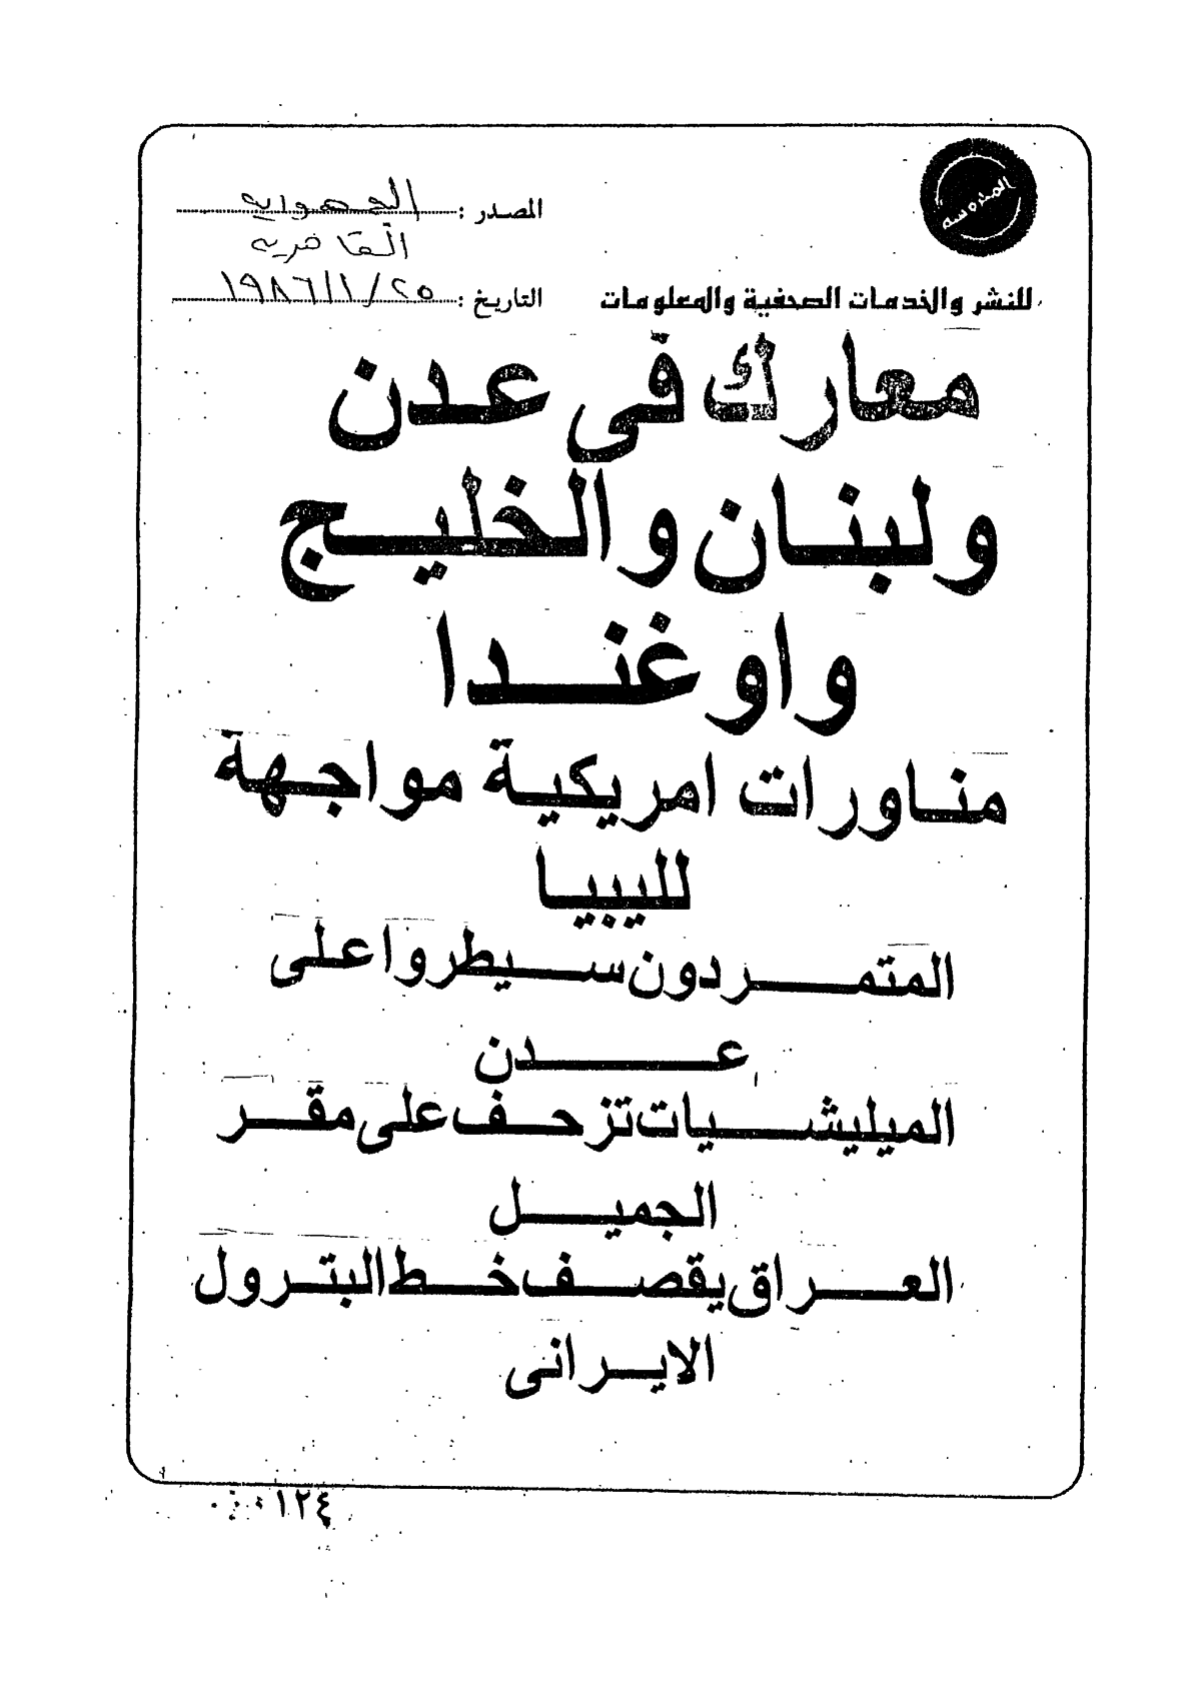 المصدر : الجمهورية
القاهرية
التاريخ : ٢٥/١/١٩٨٦
للنشر والخدمات الصحفية والمعلومات
معارك فى عدن
ولبنان والخليج
واوغندا
مناورات امريكية مواجهة
لليبيا
المتمردون سيطروا على
عدن
الميليشيات تزحف على مقر
الجميل
العراق يقصف خط البترول
الايرانى
١٢٤